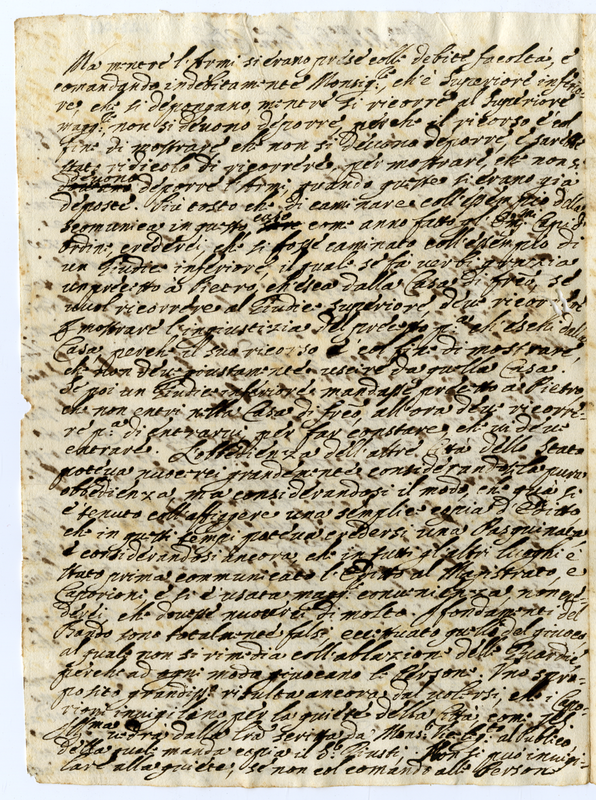 Ma mentre l'Armi si erano prese colle debite facoltà, e
comandando indebitamente Monsig.r, ch'è Superiore inferio-
re, che si depongano, mentre si ricorre al Superiore
magg.re, non si devono deporre, perche al ricorso è col
fine di mostrare che non si devono deporre, e sarebbe
stato ridicolo di ricorrere per mostrare, che non si
devono deporre l'Armi quando queste si erano già
deposte. Più tosto che di caminare coll'esempio della
scomunica in questo caso come anno fatto gl' Capi d'
Ordine, crederei che si fosse caminato coll'esemplo di
un Giudice inferiore, il quale se fà verbi gratia
un precetto à Pietro, ch'esca dalla Casa di freo, se
vuol ricorrere al Giudice Superiore, deve ricorrere
mostrare l'ingiustizia del precetto p.a ch'esca dalla
Casa perche il suo ricorso è col fine di mostrare,
che non deve giustamente uscire da quella Casa.
Se poi un Giudice inferiore mandasse precetto a Pietro
che non entri nella Casa di freo, all'ora deve ricorre-
re p.a di entrarvi per far constare che vi deve
entrare. L'obbedienza dell'altre Città dello Stato
poteva nuocerci grandemente considerandosi la pura
obbedienza, ma considerandosi il modo, che quà si
è tenuto coll'affiggere una semplice copia d'Editto
che in questi tempi poteva credersi una Pasquinata
e considerandosi ancora che in tutti gl'altri luoghi è
stato prima communicato l'Editto al Magistrato, e
Caporioni e si è usata magg.r convenienza non cre-
derei che dovesse nuocerci di molto. I fondamenti del
Bando sono totalmente falsi eccettuato quello del gioco
al quale non si rimedia coll'ablazione delle Guardie,
perche ad ogni modo giuocano le Persone. Uno spro-
posito grandiss.o risulta ancora dal volersi, che i Capo-
rioni invigilano per la quiete della Città, come
vedrà dalla scritta da Mons.r al publico
della quale manda copia il S.r Giusti, Non si può invigi-
lare alla quiete, se non col comando alle Persone